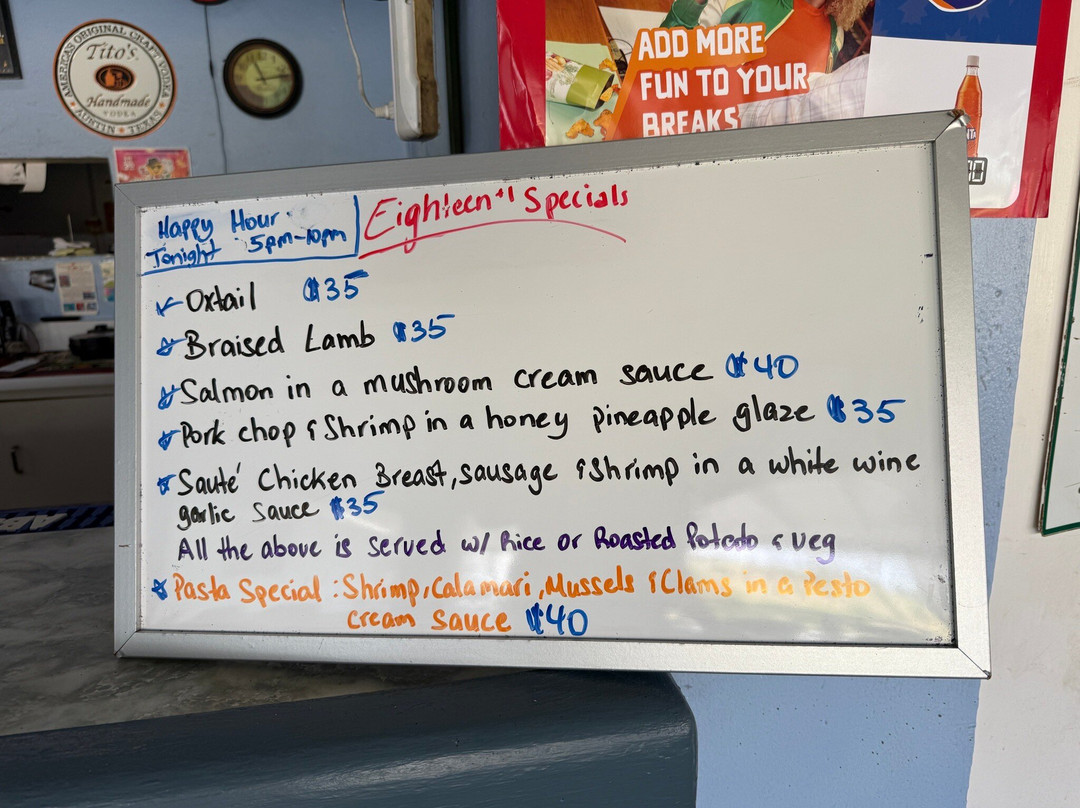 AMERICA'S ORIGINAL CRAFT VODKA
Tito's
Handmade
VODKA
AUSTIN ★ TEXAS
ADD MORE
FUN TO YOUR
BREAKS
Happy Hour
Tonight 5pm-10pm
Eighteen+1 Specials
Oxtail $35
Braised Lamb $35
Salmon in a mushroom cream sauce $40
Pork chop & Shrimp in a honey pineapple glaze $35
Sauté Chicken Breast, sausage & Shrimp in a white wine
garlic sauce $35
All the above is served w/ Rice or Roasted Potato & veg
Pasta Special : Shrimp, Calamari, Mussels & Clams in a Pesto
cream sauce $40